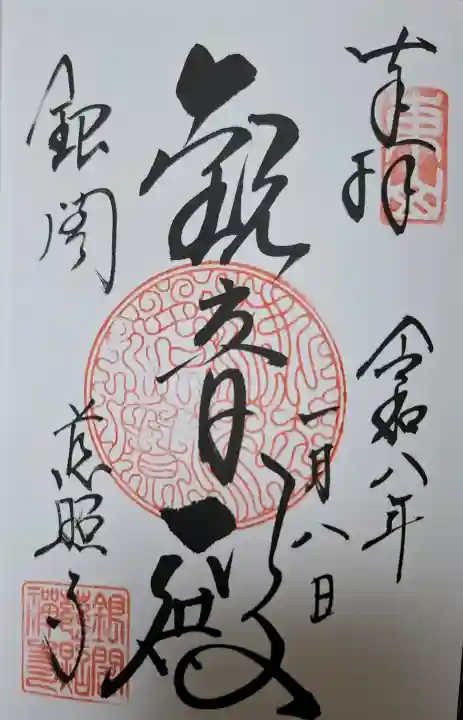 奉拝
令和八年
一月八日
観音殿
銀閣
慈照寺